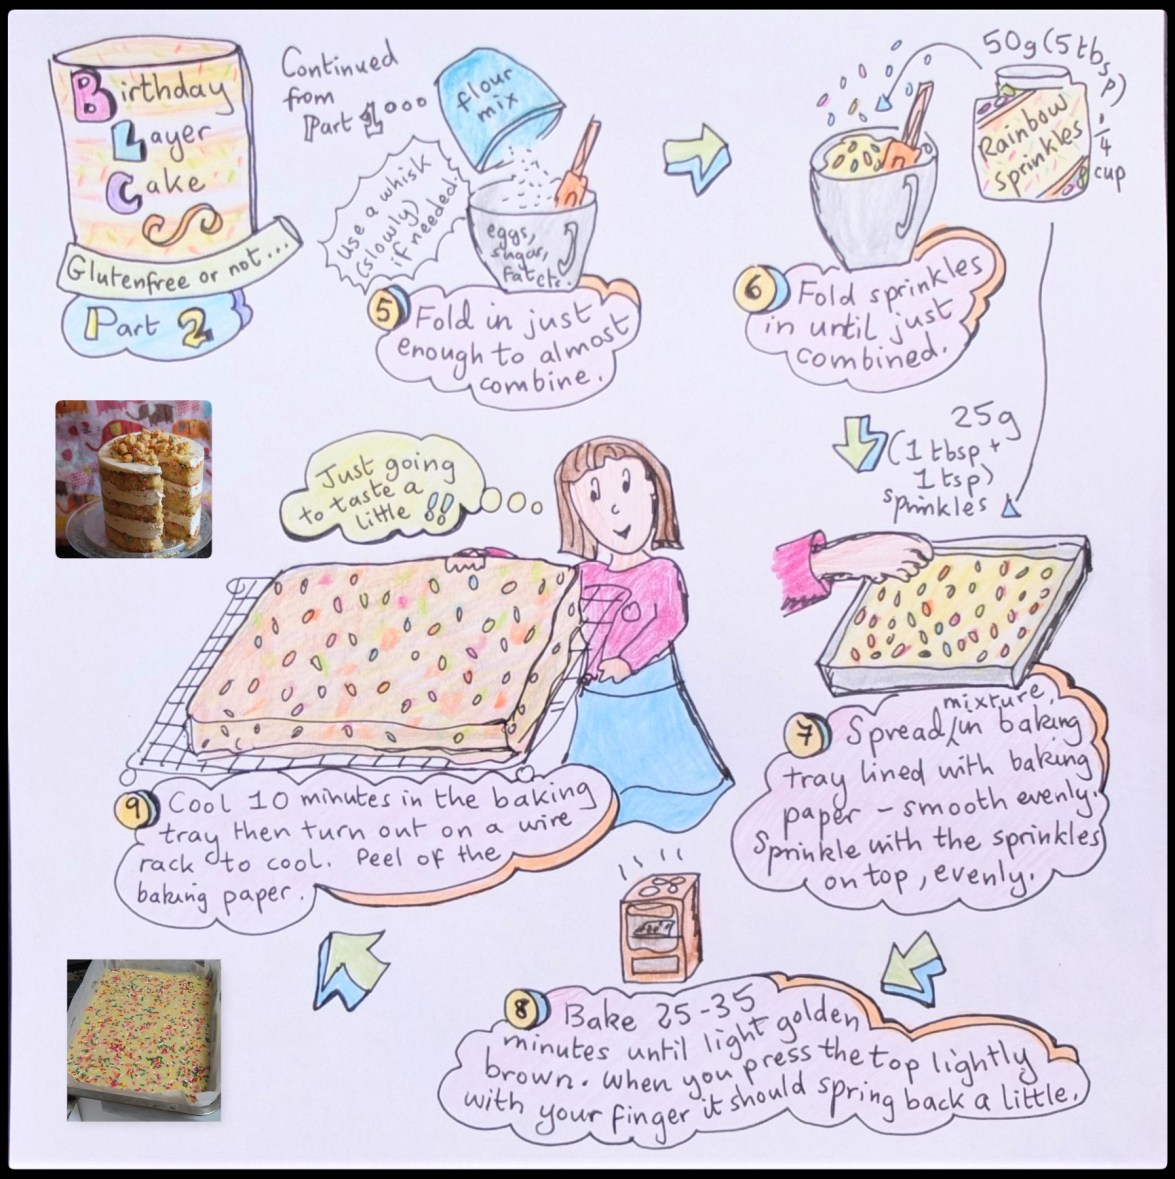 Birthday
Layer
Cake
Glutenfree or not...
Part 2
Continued
from
Part 1...
flour
mix
use a whisk
(slowly)
if needed!
eggs,
sugar,
fat etc.
5 Fold in just
enough to almost
combine.
50g (5 tbsp)
1/4
cup
Rainbow
sprinkles
6 Fold sprinkles
in until just
combined.
25g
(1 tbsp +
1 tsp)
sprinkles
mixture,
7 Spread in baking
tray lined with baking
paper - smooth evenly.
Sprinkle with the sprinkles
on top, evenly.
8 Bake 25-35
minutes until light golden
brown. When you press the top lightly
with your finger it should spring back a little.
Just going
to taste a
little !!
9 Cool 10 minutes in the baking
tray then turn out on a wire
rack to cool. Peel of the
baking paper.